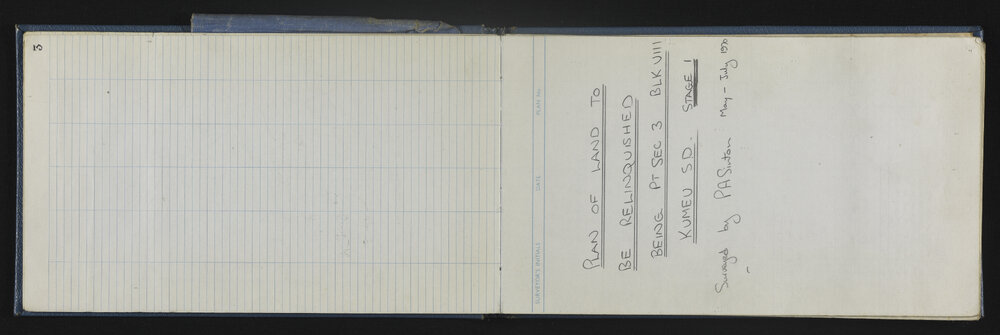 3
SURVEYOR'S INITIALS DATE PLAN No.
PLAN OF LAND TO
BE RELINQUISHED
BEING PT SEC 3 BLK VIII
KUMEU S.D. STAGE 1
Surveyed by PA Sinton May - July 1970